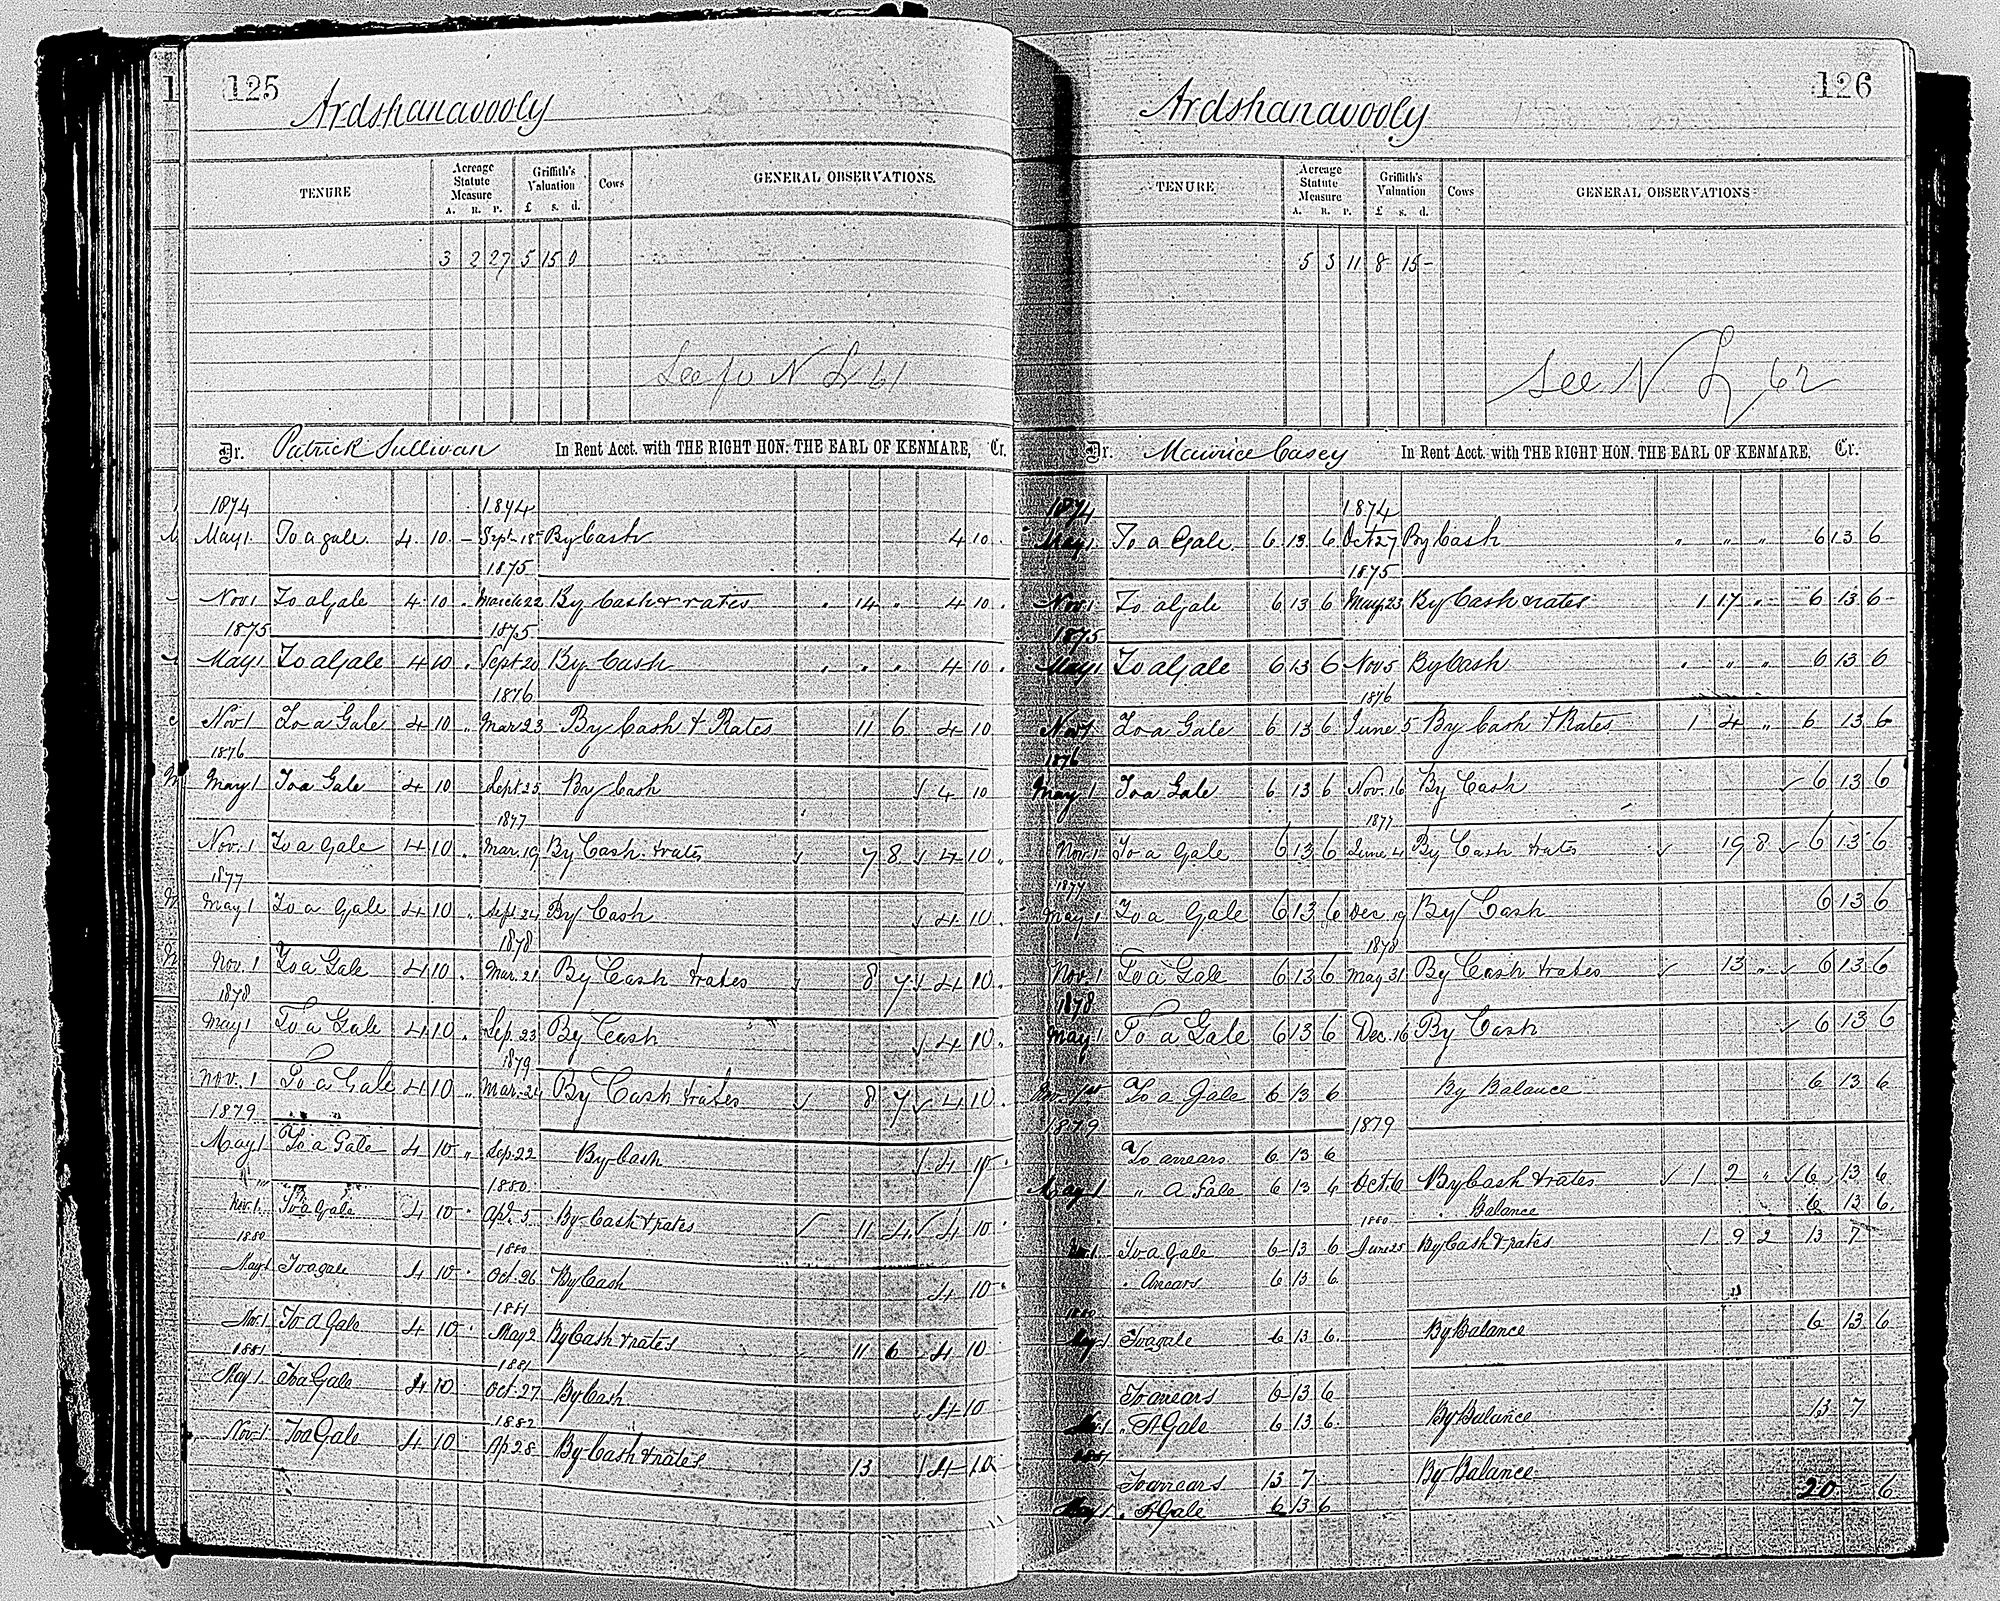 125
Ardshanavooly
TENURE
Acreage Statute Measure
A. R. P.
Griffith's Valuation
£ s. d.
Cows
GENERAL OBSERVATIONS.
3 2 27 5 15 0
See fo N L 61
Dr. Patrick Sullivan In Rent Acct. with THE RIGHT HON. THE EARL OF KENMARE, Cr.
1874 1874
May 1 To a gale 4 10 - Sept 18 By Cash 4 10 .
1875
Nov 1 To a Gale 4 10 . March 22 By Cash & rates . 14 " 4 10 .
1875 1875
May 1 To a Gale 4 10 . Sept 20 By Cash " " " 4 10 .
1876
Nov 1 To a Gale 4 10 . Mar 23 By Cash & Rates 11 6 4 10
1876
May 1 To a Gale 4 10 Sept 25 By Cash ✓ 4 10
1877
Nov. 1 To a Gale 4 10 . Mar. 19 By Cash & rates ✓ 7 8 ✓ 4 10 .
1877
May 1 To a Gale 4 10 " Sept 24 By Cash ✓ 4 10 .
1878
Nov. 1 To a Gale 4 10 . Mar. 21 By Cash & rates ✓ 8 7 ✓ 4 10 .
1878
May 1 To a Gale 4 10 . Sep. 23 By Cash ✓ 4 10 .
1879
Nov. 1 To a Gale 4 10 " Mar. 24 By Cash & rates ✓ 8 7 ✓ 4 10 .
1879
May 1 To a Gale 4 10 " Sep. 22 By Cash ✓ 4 10 .
" 1880
Nov. 1. To a Gale 4 10 . Apl. 5 By Cash & rates ✓ 11 4 ✓ 4 10 .
1880 1880
May 1 To a gale 4 10 . Oct. 26 By Cash 4 10 .
1881
Nov. 1 To a Gale 4 10 . May 2 By Cash & rates 11 6 4 10
1881 1881
May 1. To a Gale 4 10 Oct. 27 By Cash ✓ 4 10
1882
Nov. 1 To a Gale 4 10 Ap 28 By Cash & rates 13 ✓ 4 10
126
Ardshanavooly
TENURE
Acreage Statute Measure
A. R. P.
Griffith's Valuation
£ s. d.
Cows
GENERAL OBSERVATIONS
5 3 11 8 15 -
See N L 62
Dr. Maurice Casey In Rent Acct. with THE RIGHT HON. THE EARL OF KENMARE, Cr.
1874 1874
May 1 To a Gale 6 13 6 Oct 27 By Cash " " " 6 13 6
1875
Nov 1 To a Gale 6 13 6 May 23 By Cash & rates 1 17 " 6 13 6
1875
May 1 To a Gale 6 13 6 Nov 5 By Cash " " " 6 13 6
1876
Nov 1 To a Gale 6 13 6 June 5 By Cash & Rates 1 4 " 6 13 6
1876
May 1 To a Gale 6 13 6 Nov. 16 By Cash ✓ 6 13 6
1877
Nov 1 To a Gale 6 13 6 June 4 By Cash & rates ✓ 19 8 ✓ 6 13 6
1877
May 1 To a Gale 6 13 6 Dec. 19 By Cash 6 13 6
1878
Nov. 1 To a Gale 6 13 6 May 31 By Cash & rates ✓ 13 " ✓ 6 13 6
1878
May 1 To a Gale 6 13 6 Dec. 16 By Cash ✓ 6 13 6
Nov. 1st To a Gale 6 13 6 By Balance 6 13 6
1879 1879
To arrears 6 13 6
May 1 " a Gale 6 13 6 Oct. 6 By Cash & rates ✓ 1 2 " ✓ 6 13 6
" Balance 6 13 6
1880
Nov 1 To a Gale 6 13 6 June 25 By Cash & rates 1 9 2 13 7
" Arrears 6 13 6
1880
May 1 To a gale 6 13 6 By Balance 6 13 6
To arrears 6 13 6
Nov 1 " A Gale 6 13 6 By Balance 13 7
1881
To arrears 13 7 By Balance 20 6
May 1 " A Gale 6 13 6